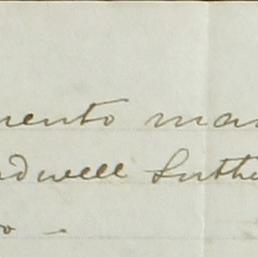 mento ma
dwell Suthe
o -